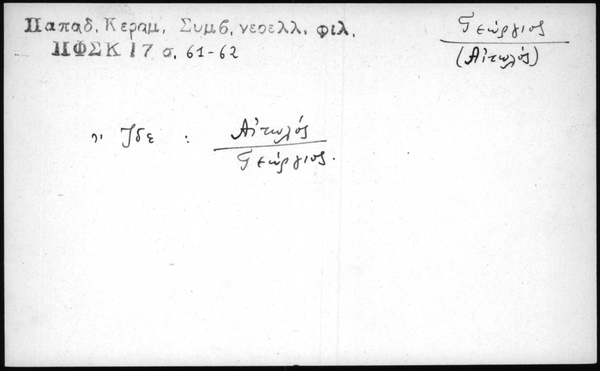 Παπαδ. Κεραμ. Συμβ. νεοελλ. φιλ.
ΠΦΣΚ 17 σ. 61-62
Γεώργιος
(Αἰτωλός)
Ἴδε : Αἰτωλός
Γεώργιος.